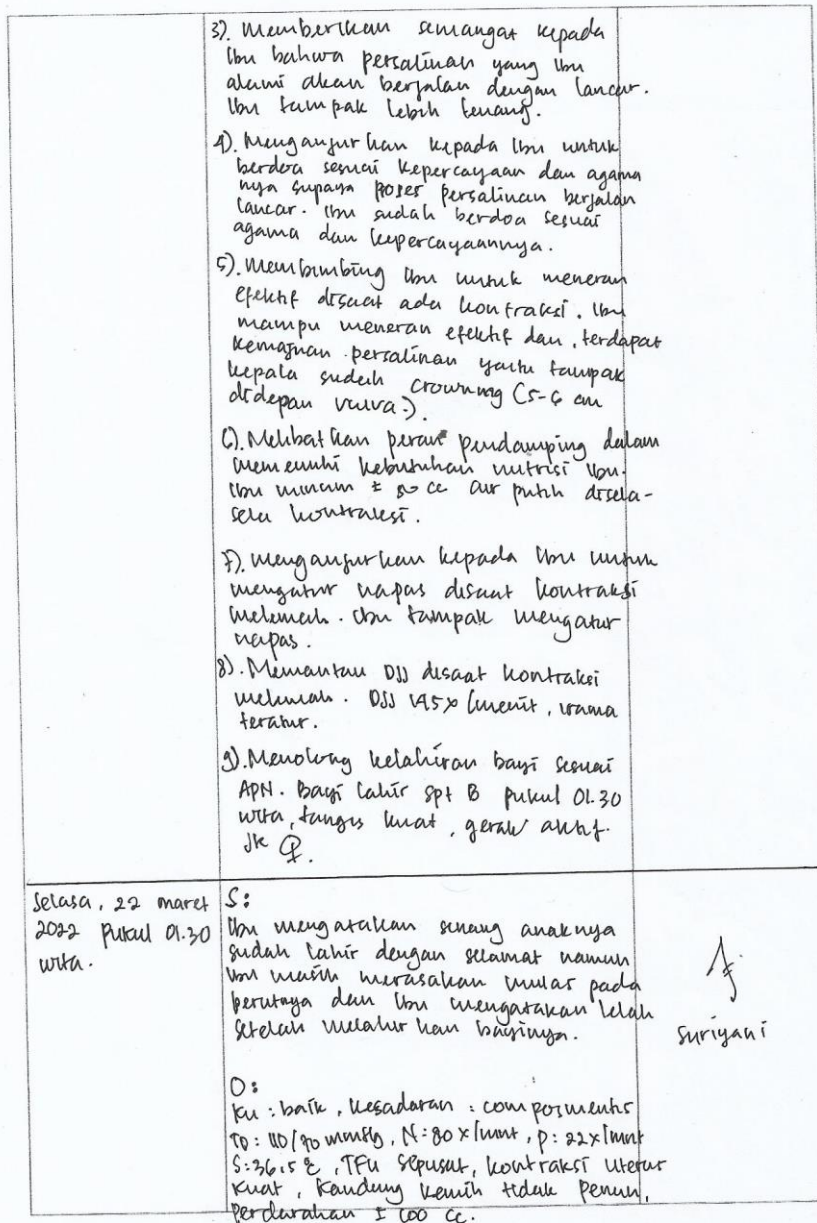 3). Memberikan semangat kepada
Ibu bahwa persalinan yang Ibu
alami akan berjalan dengan lancar.
Ibu tampak lebih tenang.
4). Menganjurkan kepada Ibu untuk
berdoa sesuai kepercayaan dan agama
nya supaya proses persalinan berjalan
lancar. Ibu sudah berdoa sesuai
agama dan kepercayaannya.
5). Membimbing Ibu untuk meneran
efektif disaat ada kontraksi. Ibu
mampu meneran efektif dan, terdapat
kemajuan persalinan yaitu tampak
kepala sudah crowning (5-6 cm
didepan vulva).
6). Melibatkan peran pendamping dalam
memenuhi kebutuhan nutrisi Ibu.
Ibu minum ± cc air putih disela-
sela kontraksi.
7). Menganjurkan kepada Ibu untuk
mengatur napas disaat kontraksi
melemah. Ibu tampak mengatur
napas.
8). Memantau DJJ disaat kontraksi
melemah. DJJ 145x/menit, irama
teratur.
9). Menolong kelahiran bayi sesuai
APN. Bayi lahir spt B pukul 01.30
wita, tangis kuat, gerak aktif.
JK ♀.
Selasa, 22 maret
2022 pukul 01.30
wita.
S:
Ibu mengatakan senang anaknya
sudah lahir dengan selamat namun
Ibu masih merasakan mulas pada
perutnya dan Ibu mengatakan lelah
setelah melahirkan bayinya.
Suriyani
O:
Ku: baik, kesadaran: composmentis
TD: 110/70 mmHg, N: 80x/mnt, p: 22x/mnt
S: 36,5 °C, TFU sepusat, kontraksi uterus
kuat, kandung kemih tidak penuh,
perdarahan ± 100 cc.